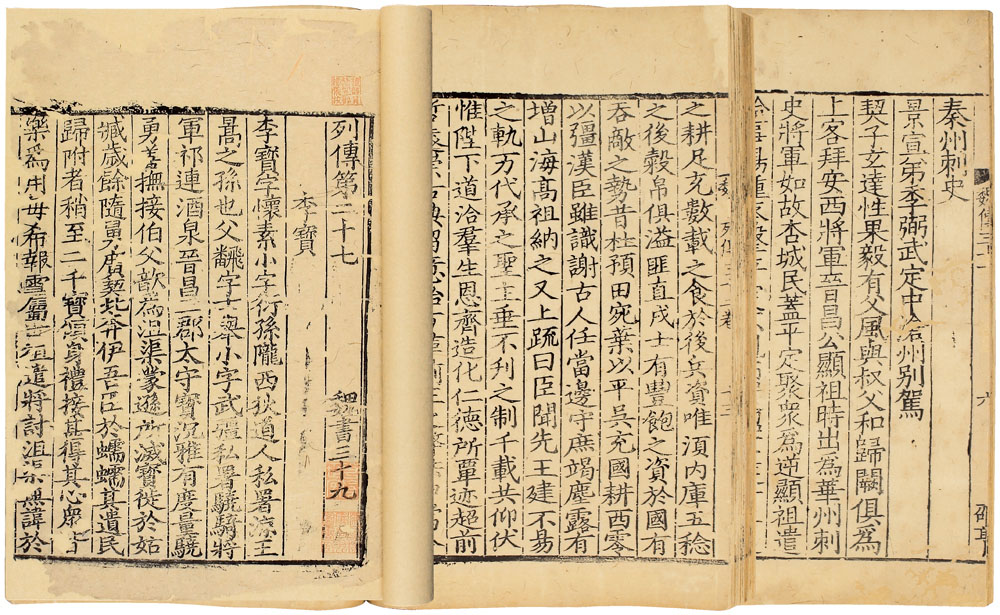 秦州刺史
景宣弟季弼武定中洛州別駕
契子玄達性果毅有父風與叔父和歸闕俱為
上客拜安西將軍晉昌公顯祖時出為華州刺
史將軍如故杏城民蓋平定聚衆為逆顯祖遣
六
之耕足充數載之食於後兵資唯須內庫五稔
之後穀帛俱溢匪直戍士有豐飽之資於國有
吞敵之勢昔杜預田宛葉以平吳充國耕西零
以彊漢臣雖識謝古人任當邊守庶竭塵露有
增山海高祖納之又上疏曰臣聞先王建不易
之軌万代承之聖主垂不刊之制千載共仰伏
惟陛下道洽羣生恩齊造化仁德所覃迹超前
列傳第二十七 魏書三十九
李寶
李寶字懷素小字衍孫隴西狄道人私署涼王
暠之孫也父翻字士舉小字武彊私署驍騎將
軍祁連酒泉晉昌三郡太守寶沉雅有度量驍
勇善撫接伯父歆為沮渠蒙遜所滅寶徙於姑
臧歲餘隨舅唐契北奔伊吾臣於蠕蠕其遺民
歸附者稍至二千寶傾身禮接甚得其心衆皆
樂為用每希報雪屬世祖遣將討沮渠無諱於